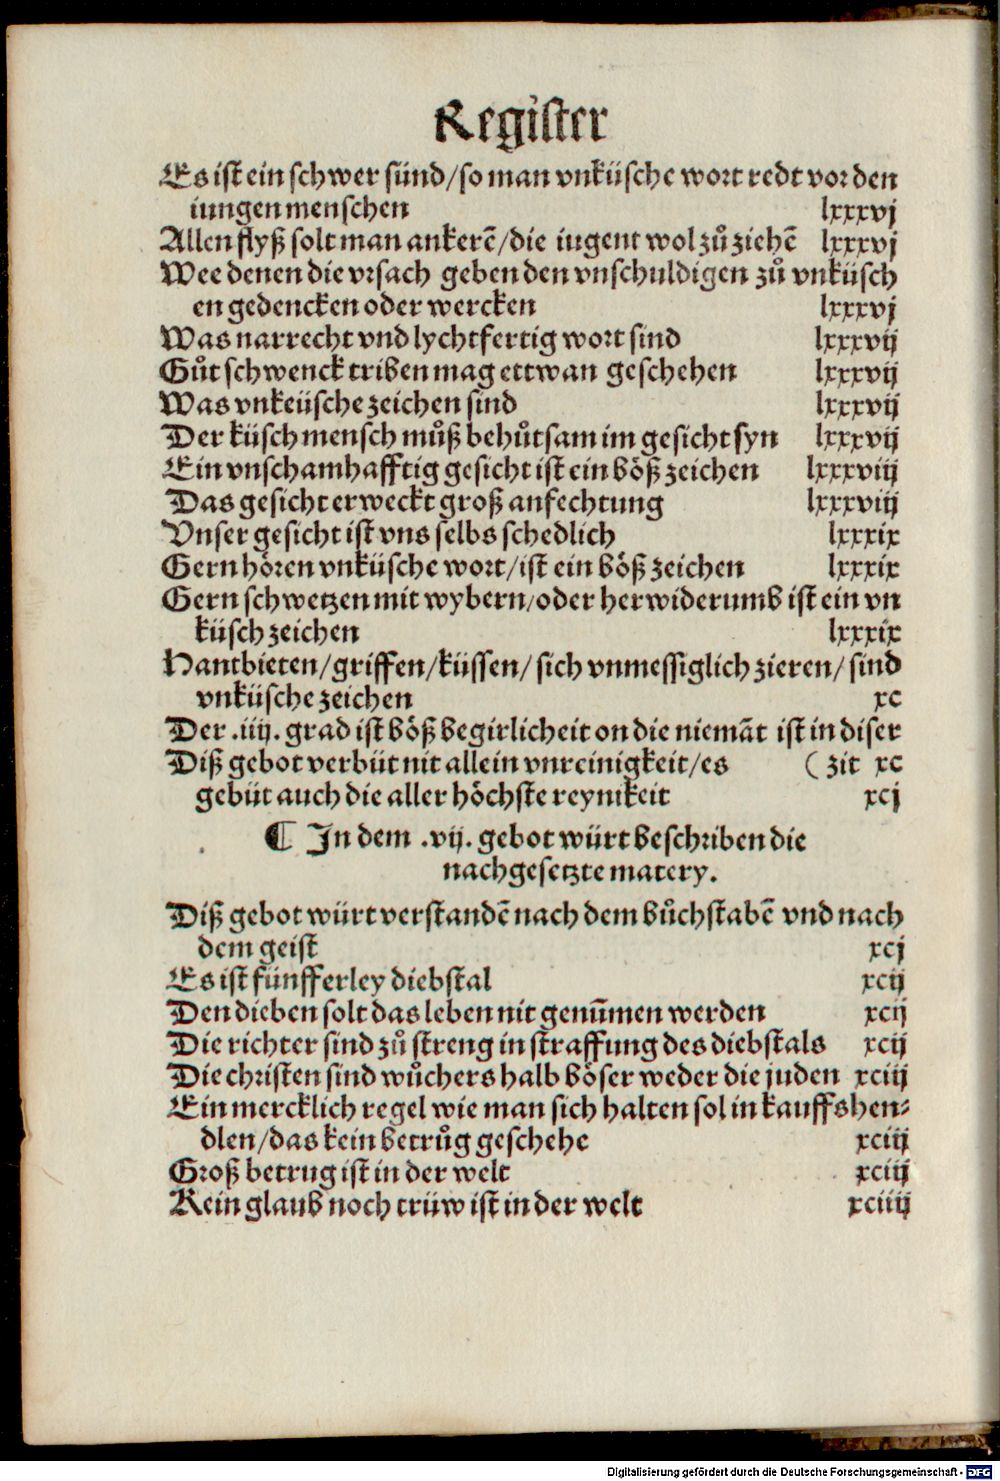 Register
Es ist ein schwer sünd/so man vnküsche wort redt vor den
iungen menschen lxxxvj
Allen flyß solt man ankerē/die iugent wol zů ziehē lxxxvj
Wee denen die vrsach geben den vnschuldigen zů vnküsch
en gedencken oder wercken lxxxvj
Was narrecht vnd lychtfertig wort sind lxxxvij
Gůt schwenck triben mag ettwan geschehen lxxxvij
Was vnkeüsche zeichen sind lxxxvij
Der küsch mensch můß behůtsam im gesicht syn lxxxvij
Ein vnschamhafftig gesicht ist ein böß zeichen lxxxviij
Das gesicht erweckt groß anfechtung lxxxviij
Vnser gesicht ist vns selbs schedlich lxxxix
Gern hören vnküsche wort/ist ein böß zeichen lxxxix
Gern schwetzen mit wybern/oder herwiderumb ist ein vn
küsch zeichen lxxxix
Hantbieten/griffen/küssen/sich vnmessiglich zieren/sind
vnküsche zeichen xc
Der .iij. grad ist böß begirlicheit on die niemāt ist in diser
Diß gebot verbüt nit allein vnreinigkeit/es ( zit xc
gebüt auch die aller höchste reynikeit xcj
¶ In dem .vij. gebot würt beschriben die
nachgesetzte matery.
Diß gebot würt verstandē nach dem bůchstabē vnd nach
dem geist xcj
Es ist fünfferley diebstal xcij
Den dieben solt das leben nit genūmen werden xcij
Die richter sind zů streng in straffung des diebstals xcij
Die christen sind wůchers halb böser weder die juden xciij
Ein mercklich regel wie man sich halten sol in kauffshen⸗
dlen/das kein betrůg geschehe xciij
Groß betrug ist in der welt xciij
Kein glaub noch trüw ist in der welt xciiij
Digitalisierung gefördert durch die Deutsche Forschungsgemeinschaft - DFG